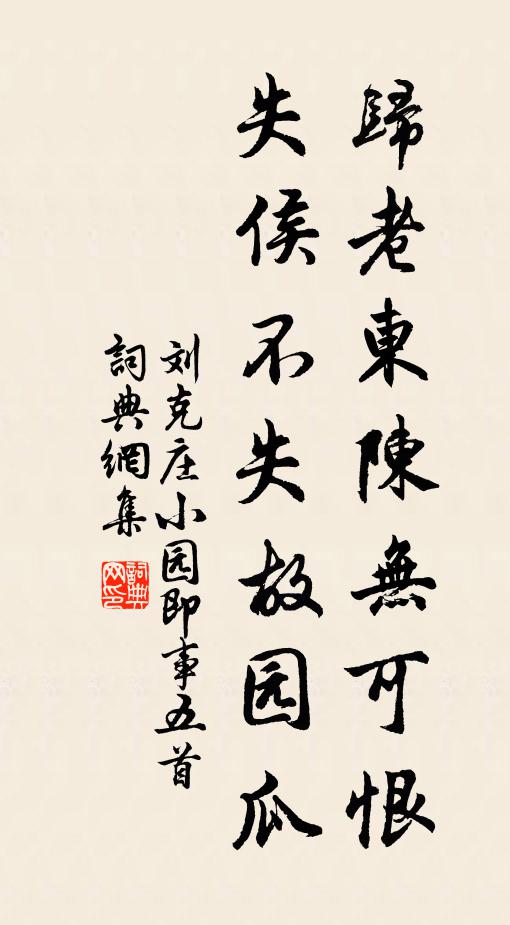 歸老東陳無可恨
失侯不失故园瓜
刘克庄小园即事五首
詞典網集
詞典网印